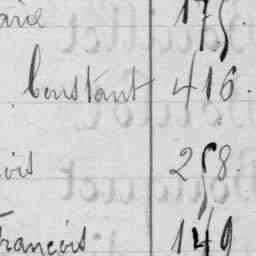 175.
Constant 416.
ois 258.
François 149